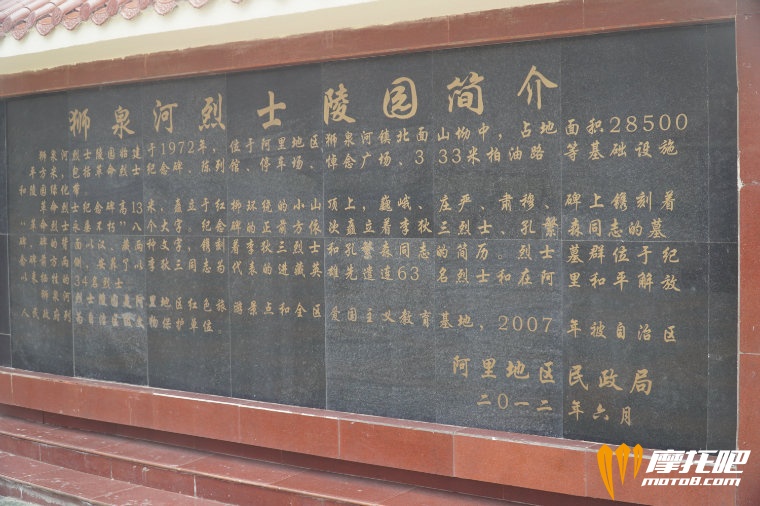 狮泉河烈士陵园简介
狮泉河烈士陵园始建于1972年，位于阿里地区狮泉河镇北面山坳中，占地面积28500
平方米，包括革命烈士纪念碑、陈列馆、停车场、悼念广场、333米柏油路等基础设施
和陵园绿化带。
革命烈士纪念碑高13米，矗立于红柳环绕的小山顶上，巍峨、庄严、肃穆，碑上镌刻着
“革命烈士永垂不朽”八个大字。纪念碑的正前方依次矗立着李狄三烈士、孔繁森同志的墓
碑，碑的背面以汉、藏两种文字，镌刻着李狄三烈士和孔繁森同志的简历。烈士墓群位于纪
念碑前方两侧，安葬了以李狄三同志为代表的进藏英雄先遣连63名烈士和在阿里和平解放
以来牺牲的34名烈士。
狮泉河烈士陵园是阿里地区红色旅游景点和全区爱国主义教育基地，2007年被自治区
人民政府列为自治区级文物保护单位。
阿里地区民政局
二〇一二年六月
摩托吧
moto8.com